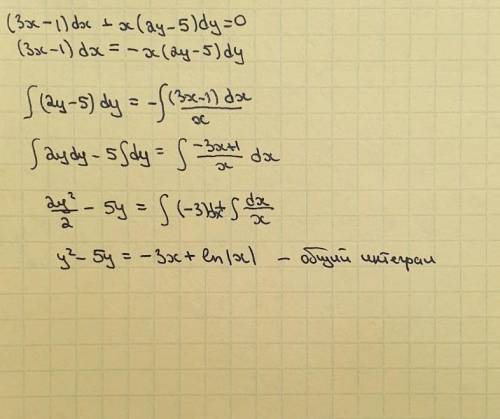 (3x-1)dx + x(2y-5)dy=0
(3x-1)dx = -x(2y-5)dy
∫(2y-5)dy = -∫(3x-1)dx/x
∫2ydy - 5∫dy = ∫(-3x+1)/x dx
2y²/2 - 5y = ∫(-3)dx + ∫dx/x
y² - 5y = -3x + ln|x| - общий интеграл